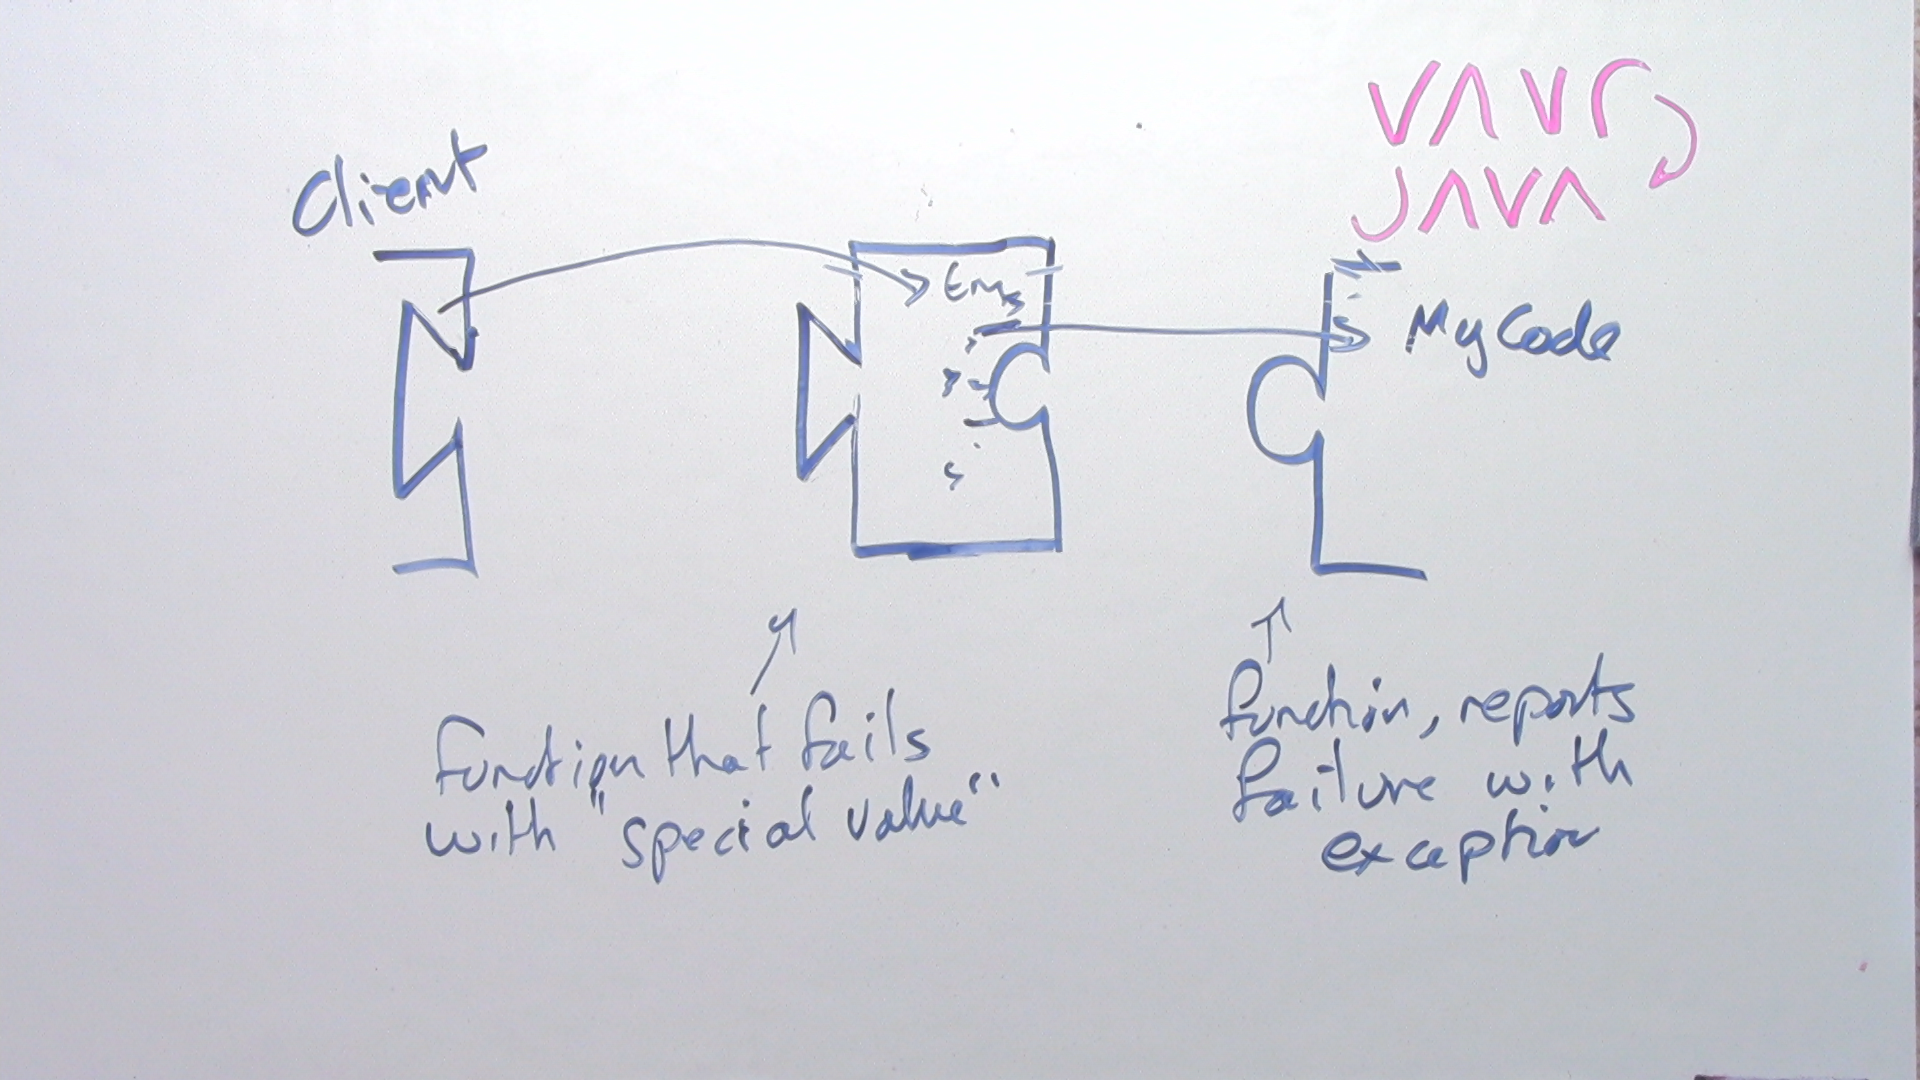 VAVr
JAVA
Client
My Code
function that fails
with "special value"
function, reports
failure with
exception